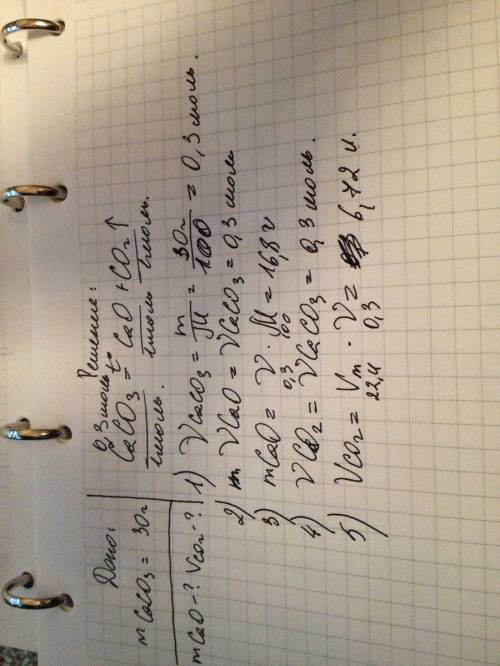 Дано:
mCaCO₃ = 30г
mCaO-? Vco₂-?
Решение:
0,3 моль
CaCO₃ =ᵗ CaO + CO₂↑
1моль. 1моль 1моль.
1) νCaCO₃ = m/M = 30г/100 = 0,3 моль.
2) νCaO = νCaCO₃ = 0,3 моль
3) mCaO = ν · M = 16,8 г
0,3 100
4) νCO₂ = νCaCO₃ = 0,3 моль.
5) Vco₂ = Vm · ν = 6,72 л.
22,4 0,3